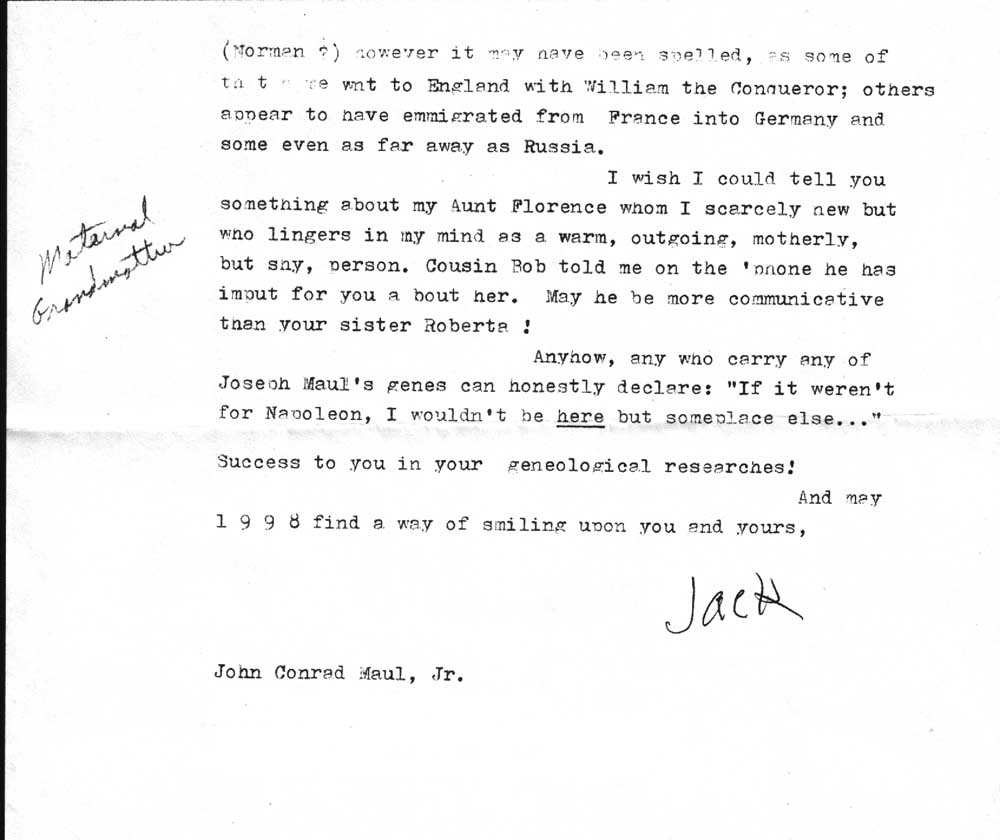 (Norman ?) however it may have been spelled, as some of
wnt to England with William the Conqueror; others
appear to have emmigrated from France into Germany and
some even as far away as Russia.
I wish I could tell you
something about my Aunt Florence whom I scarcely new but
who lingers in my mind as a warm, outgoing, motherly,
but shy, person. Cousin Bob told me on the 'phone he has
imput for you a bout her. May he be more communicative
than your sister Roberta !
Maternal
Grandmother
Anyhow, any who carry any of
Joseph Maul's genes can honestly declare: "If it weren't
for Napoleon, I wouldn't be here but someplace else..."
Success to you in your geneological researches!
And may
1 9 9 8 find a way of smiling upon you and yours,
Jack
John Conrad Maul, Jr.